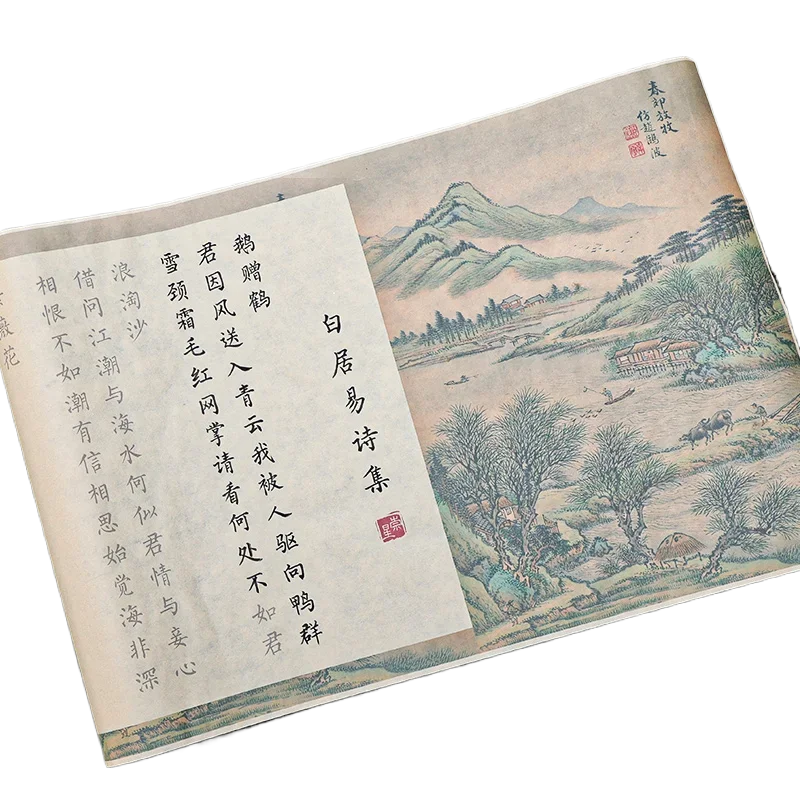 春郊放牧
仿趙鷗波
白居易诗集
鹅赠鹤
君因风送入青云我被人驱向鸭群
雪颈霜毛红网掌请看何处不如君
浪淘沙
借问江潮与海水何似君情与妾心
相恨不如潮有信相思始觉海非深
薇花